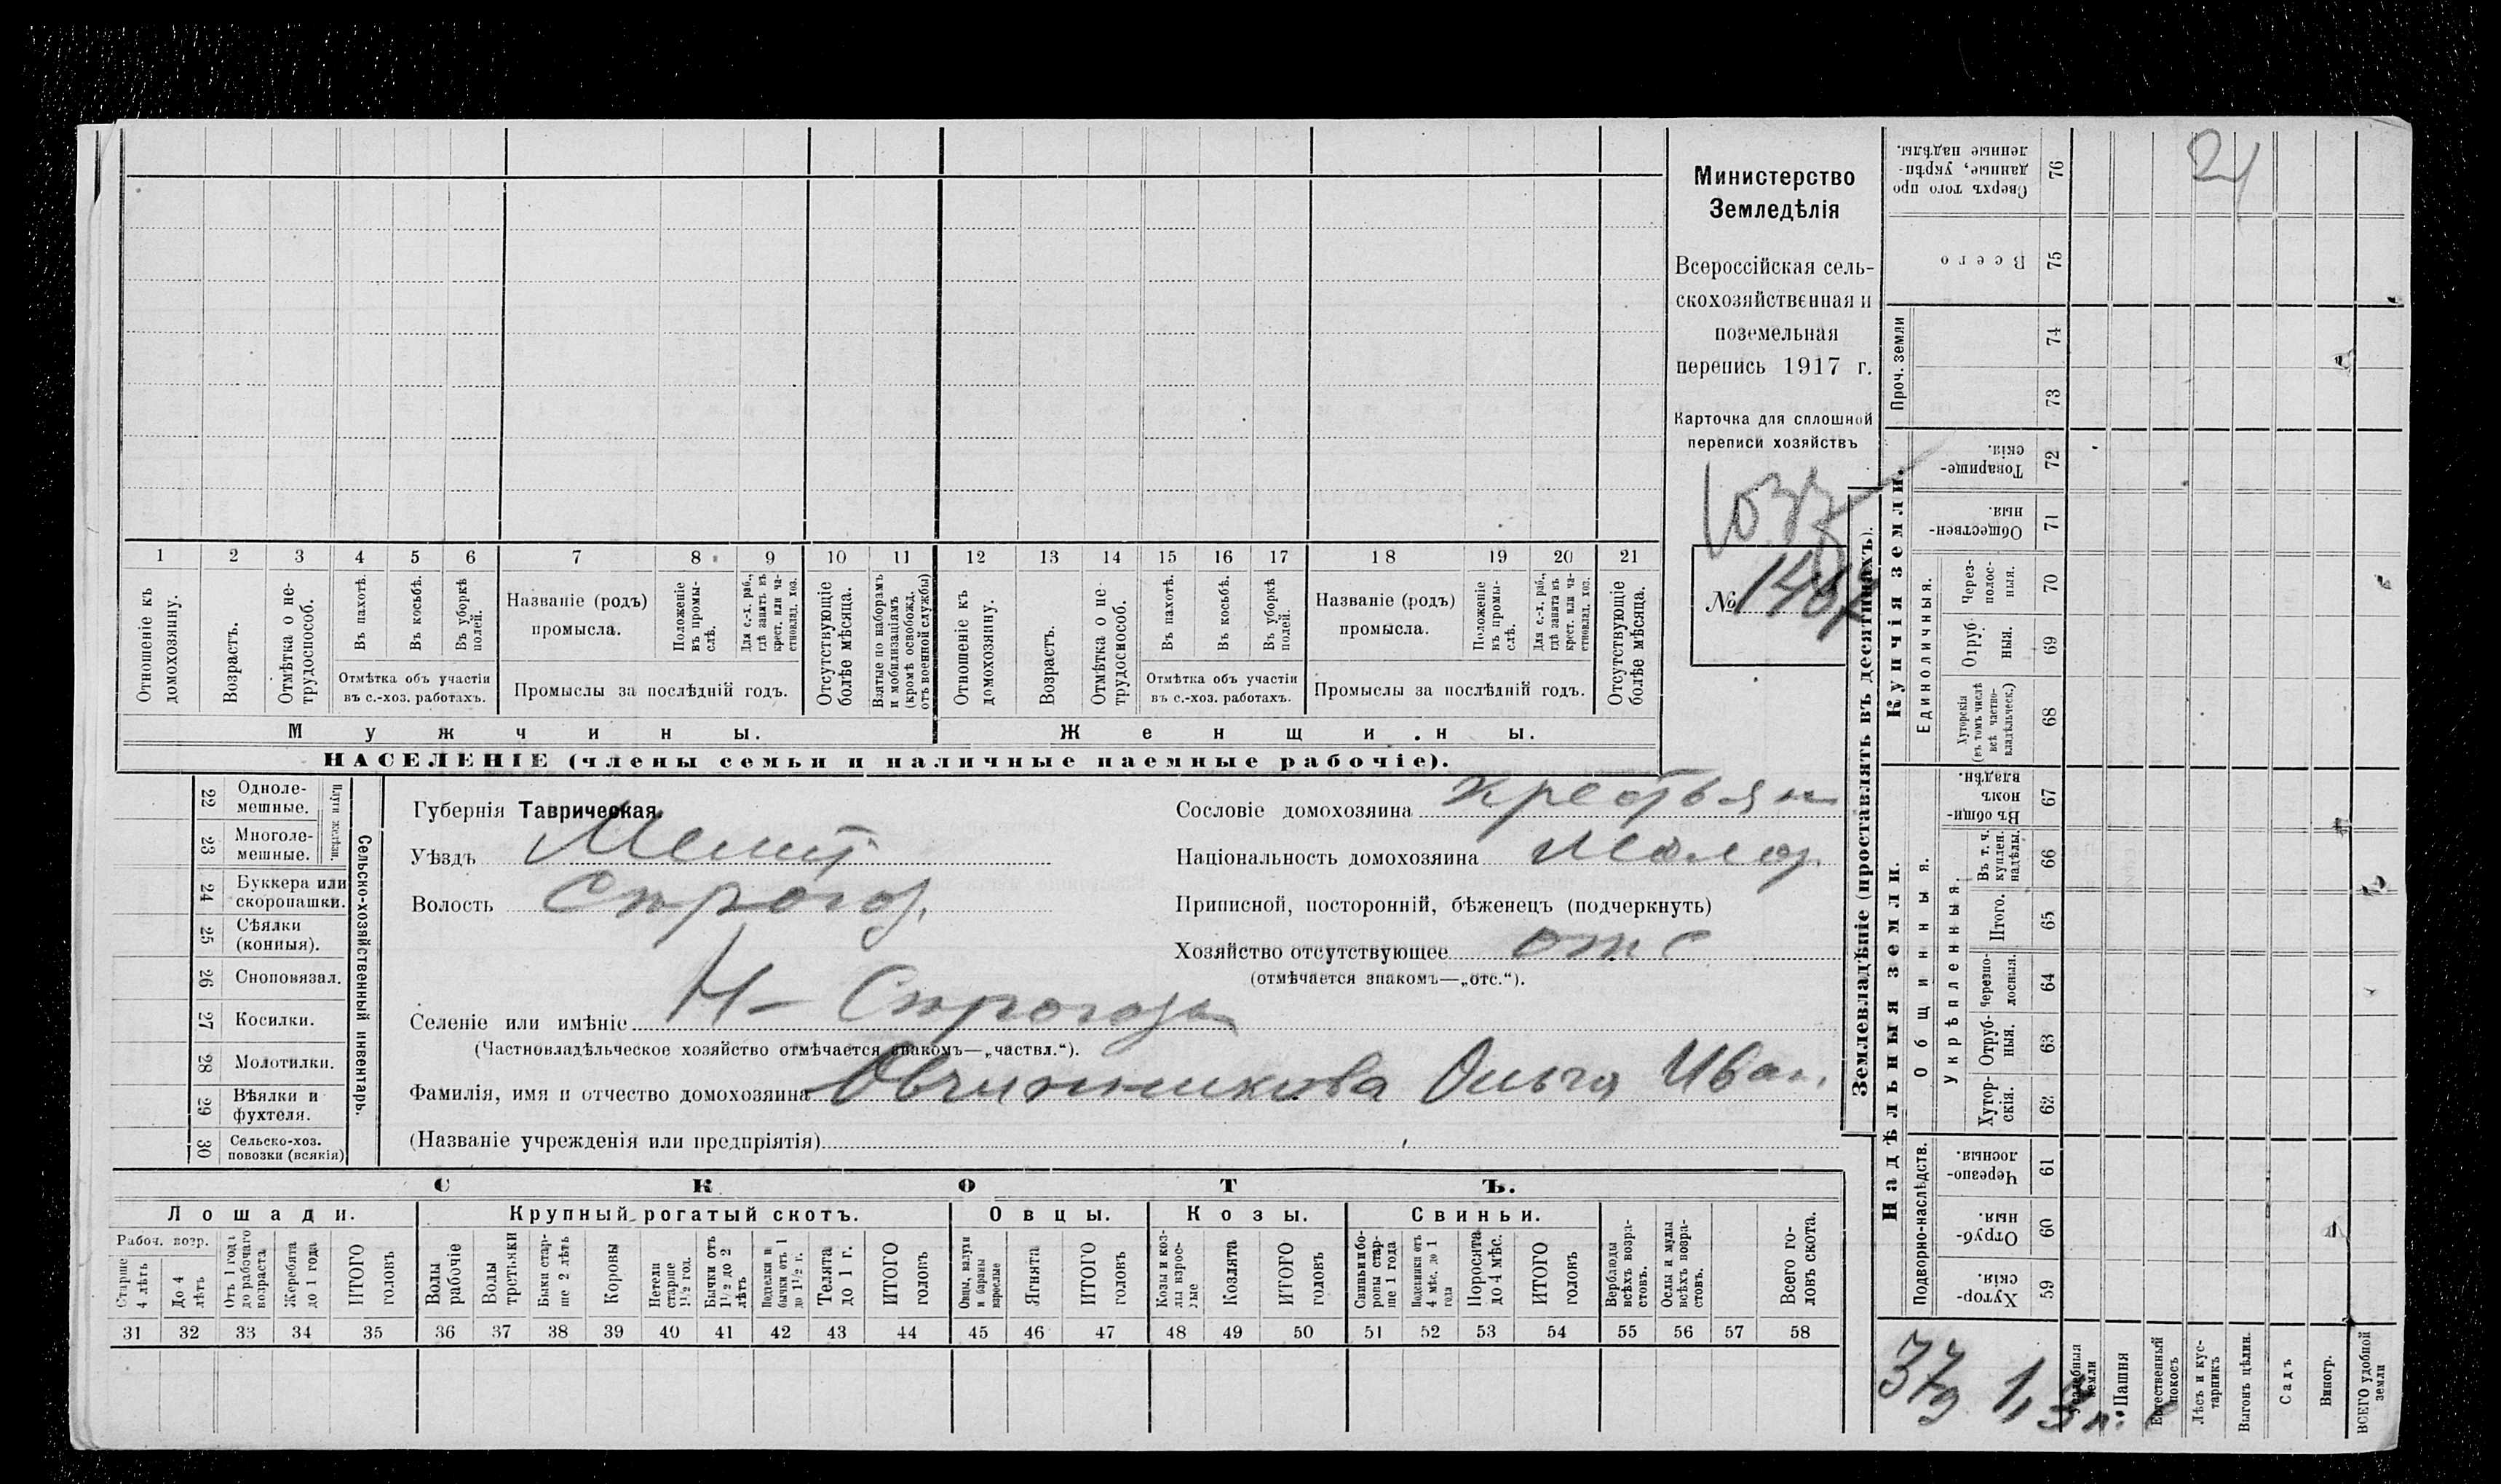 Министерство
Земледѣлія
Всероссійская сель-
скохозяйственная и
поземельная
перепись 1917 г.
Карточка для сплошной
переписи хозяйствъ
№ 1487
1 2 3 4 5 6 7 8 9 10 11 12 13 14 15 16 17 18 19 20 21
Отношеніе къ домохозяину.
Возрастъ.
Отмѣтка о не-трудоспособ.
Въ пахотѣ.
Въ косьбѣ.
Въ уборкѣ полей.
Отмѣтка объ участіи
въ с.-хоз. работахъ.
Названіе (родъ)
промысла.
Положеніе въ промы-слѣ.
Для с.-х. раб., гдѣ занятъ въ крест. или ча-стновлад. хоз.
Промыслы за послѣдній годъ.
Отсутствующіе болѣе мѣсяца.
Взятые по наборамъ и мобилизаціямъ (кромѣ освобожд. отъ военной службы)
Отношеніе къ домохозяину.
Возрастъ.
Отмѣтка о не-трудоспособ.
Въ пахотѣ.
Въ косьбѣ.
Въ уборкѣ полей.
Отмѣтка объ участіи
въ с.-хоз. работахъ.
Названіе (родъ)
промысла.
Положеніе въ промы-слѣ.
Для с.-х. раб., гдѣ занята въ крест. или ча-стновлад. хоз.
Промыслы за послѣдній годъ.
Отсутствующіе болѣе мѣсяца.
Мужчины.
Женщины.
НАСЕЛЕНІЕ (члены семьи и наличные наемные рабочіе).
22 Одноле-мешные.
23 Многоле-мешные.
Плуги желѣзн.
24 Буккера или скоропашки.
25 Сѣялки (конныя).
26 Сноповязал.
27 Косилки.
28 Молотилки.
29 Вѣялки и фухтеля.
30 Сельско-хоз. повозки (всякія)
Сельско-хозяйственный инвентарь.
Губернія Таврическая.
Уѣздъ Мелит
Волость Строгоз.
Селеніе или имѣніе Н- Строгозы
(Частновладѣльческое хозяйство отмѣчается знакомъ—„частвл.“).
Фамилія, имя и отчество домохозяина Овчинникова Ольга Иван.
(Названіе учрежденія или предпріятія)
Сословіе домохозяина крестьян
Національность домохозяина малор.
Приписной, посторонній, бѣженецъ (подчеркнуть)
Хозяйство отсутствующее отс
(отмѣчается знакомъ—„отс.“).
СКОТЪ.
Лошади.
Крупный рогатый скотъ.
Овцы.
Козы.
Свиньи.
Рабоч. возр.
Старше 4 лѣтъ
До 4 лѣтъ
Отъ 1 года до рабочаго возраста
Жеребята до 1 года
ИТОГО головъ
Волы рабочіе
Волы третьяки
Быки стар-ше 2 лѣтъ
Коровы
Нетели старше 1½ год.
Бычки отъ 1½ до 2 лѣтъ
Подтелки и бычки отъ 1 до 1½ г.
Телята до 1 г.
ИТОГО головъ
Овцы, валухи и бараны взрослые
Ягнята
ИТОГО головъ
Козы и коз-лы взрос-лые
Козлята
ИТОГО головъ
Свиньи и бо-ровы стар-ше 1 года
Подсвинки отъ 4 мѣс. до 1 года
Поросята до 4 мѣс.
ИТОГО головъ
Верблюды всѣхъ возра-стовъ.
Ослы и мулы всѣхъ возра-стовъ.
Всего го-ловъ скота.
31 32 33 34 35 36 37 38 39 40 41 42 43 44 45 46 47 48 49 50 51 52 53 54 55 56 57 58
Землевладѣніе (проставлять въ десятинахъ).
Надѣльныя земли.
Купчія земли.
Проч. земли
Подворно-наслѣдств.
Общинныя.
Укрѣпленныя.
Единоличныя.
Сверхъ того про данные, укрѣп-ленные надѣлы. 76
Всего 75
74
73
Товарище-скія. 72
Обществен-ныя. 71
Через-полос-ныя. 70
Отруб-ныя. 69
Хуторскія (въ томъ числѣ всѣ частно-владѣльческ.) 68
Въ общин-номъ владѣн. 67
Въ т. ч. куплен. надѣлы. 66
Итого. 65
Черезпо-лосныя. 64
Отруб-ныя. 63
Хутор-скія. 62
Черезпо-лосныя. 61
Отруб-ныя. 60
Хутор-скія. 59
Усадебныя земли
Пашня
Естественный покосъ
Лѣсъ и кус-тарникъ
Выгонъ цѣлин.
Садъ
Виногр.
ВСЕГО удобной земли